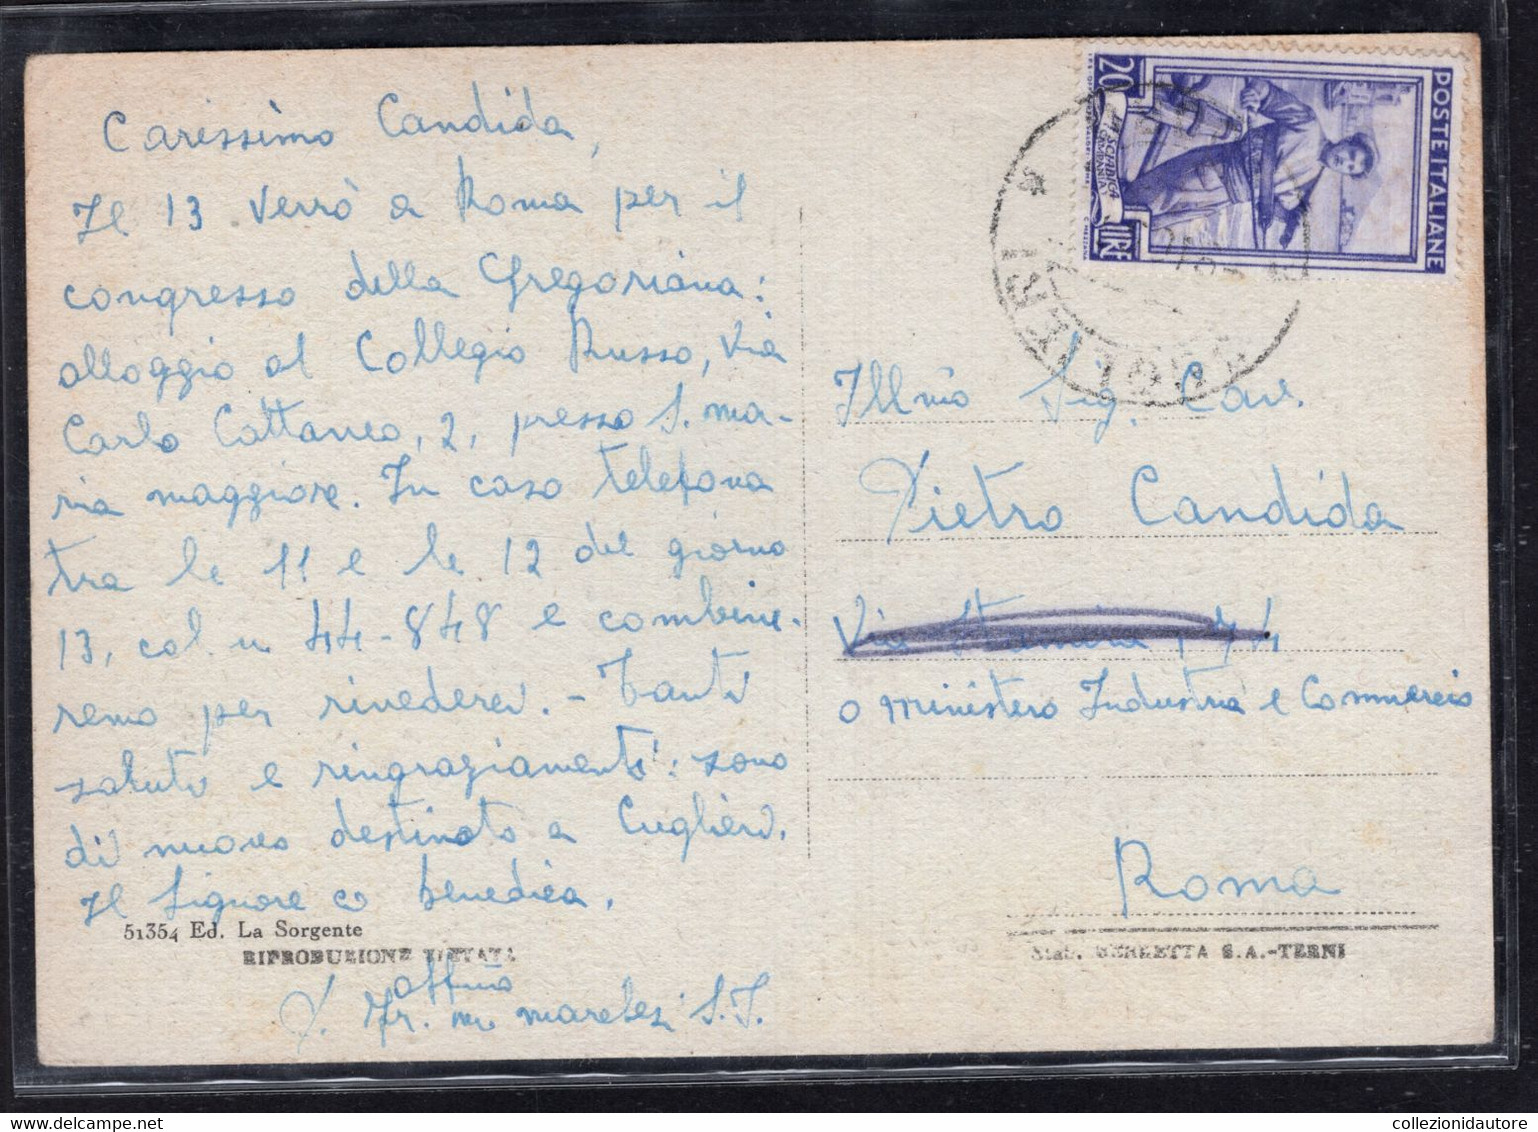 Carissimo Candida,
Il 13 verrò a Roma per il
congresso della Gregoriana:
alloggio al Collegio Russo, via
Carlo Cattaneo, 2, presso S. ma-
ria maggiore. In caso telefona
tra le 11 e le 12 del giorno
13, col n 44-848 e combine-
remo per rivederci. - Tanti
saluti e ringraziamenti: sono
di nuovo destinato a Cuglieri.
Il Signore ci benedica.
51354 Ed. La Sorgente
RIPRODUZIONE VIETATA
affmo
P. Fr. M. S.J.
POSTE ITALIANE
20
LIRE
CUGLIERI
Illmo Sig. Cav.
Pietro Candida
Via 74
o Ministero Industria e Commercio
Roma
Stab. BERRETTA S.A.-TERNI
collezionidautore